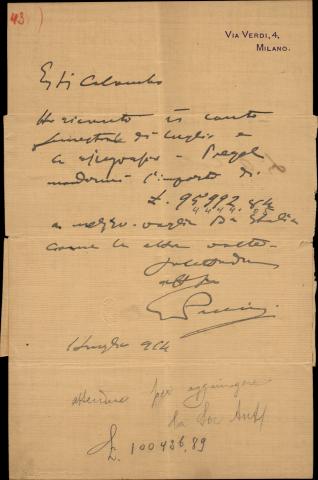 43)
VIA VERDI, 4,
MILANO.
Egr Colombo
Ho ricevuto il conto
semestrale di luglio e
La ringrazio - Prego
mandarmi l'importo di
£. 95992.84
a mezzo vaglia Ba Italia
come le altre volte.
Salutandola
aff
G Puccini
1 luglio 924
attenzione per aggiungere
la Soc Aut
£. 100426,89